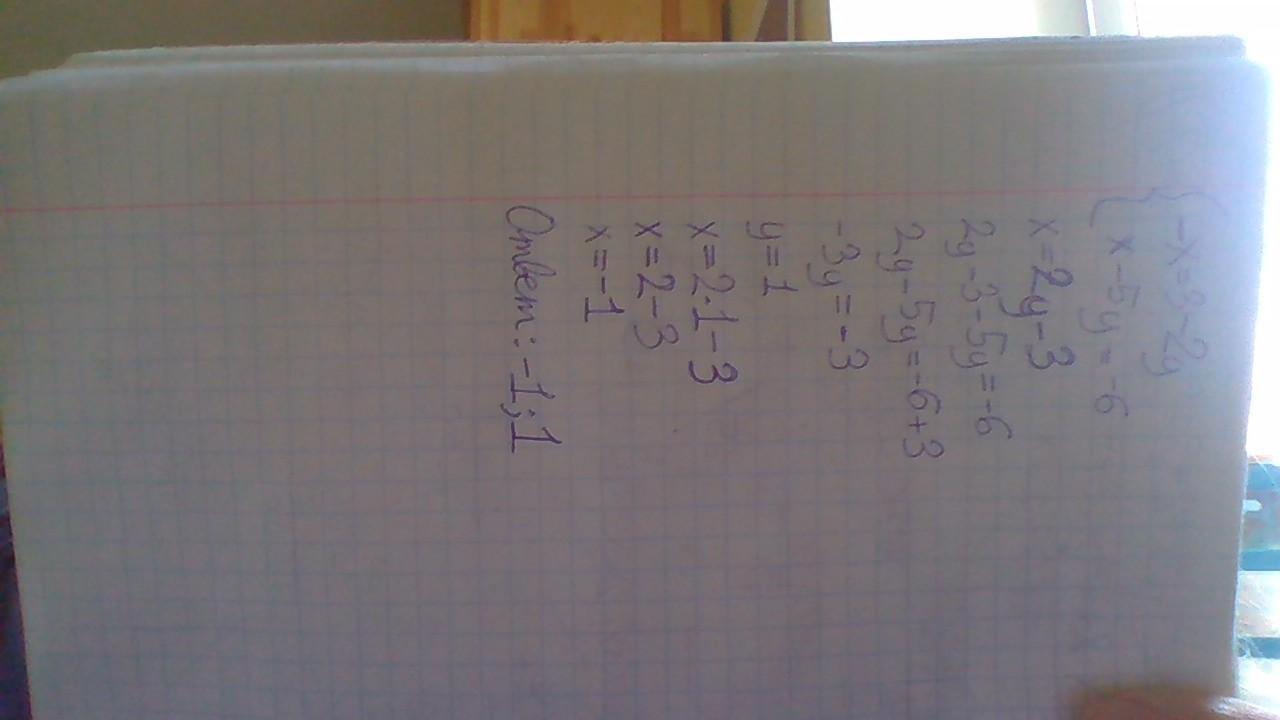 -x=3-2y
x-5y=-6
x=2y-3
2y-3-5y=-6
2y-5y=-6+3
-3y=-3
y=1
x=2·1-3
x=2-3
x=-1
Ответ: -1;1